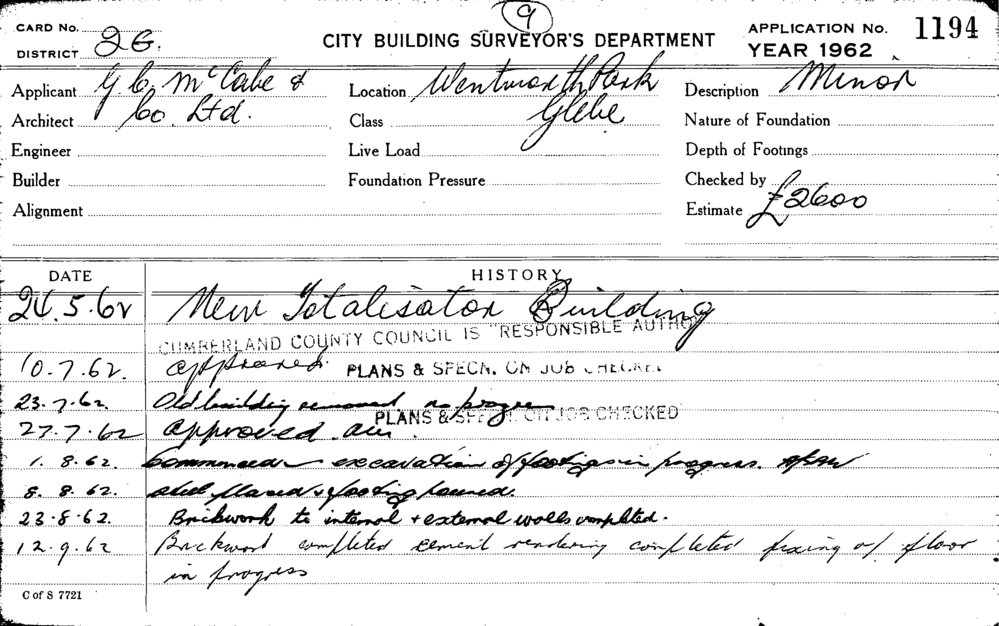 9
CARD No.
DISTRICT 2G.
CITY BUILDING SURVEYOR'S DEPARTMENT
APPLICATION No. 1194
YEAR 1962
Applicant G. C. McCabe &
Location Wentworth Park
Description Minor
Architect Co. Ltd.
Class Glebe
Nature of Foundation
Engineer
Live Load
Depth of Footings
Builder
Foundation Pressure
Checked by
Alignment
Estimate £2600
DATE HISTORY
24.5.62 New Totalisator Building
CUMBERLAND COUNTY COUNCIL IS "RESPONSIBLE AUTHO
10.7.62. approved. PLANS & SPECN. ON JOB CHECKED
23.7.62. Old building removed no progress
PLANS & SPECN. ON JOB CHECKED
27.7.62 approved
1.8.62. Commenced excavation of footings in progress.
8.8.62. Steel placed & footing poured.
23.8.62. Brickwork to internal + external walls completed.
12.9.62 Brickwork completed cement rendering completed fixing of floor
in progress
C of S 7721